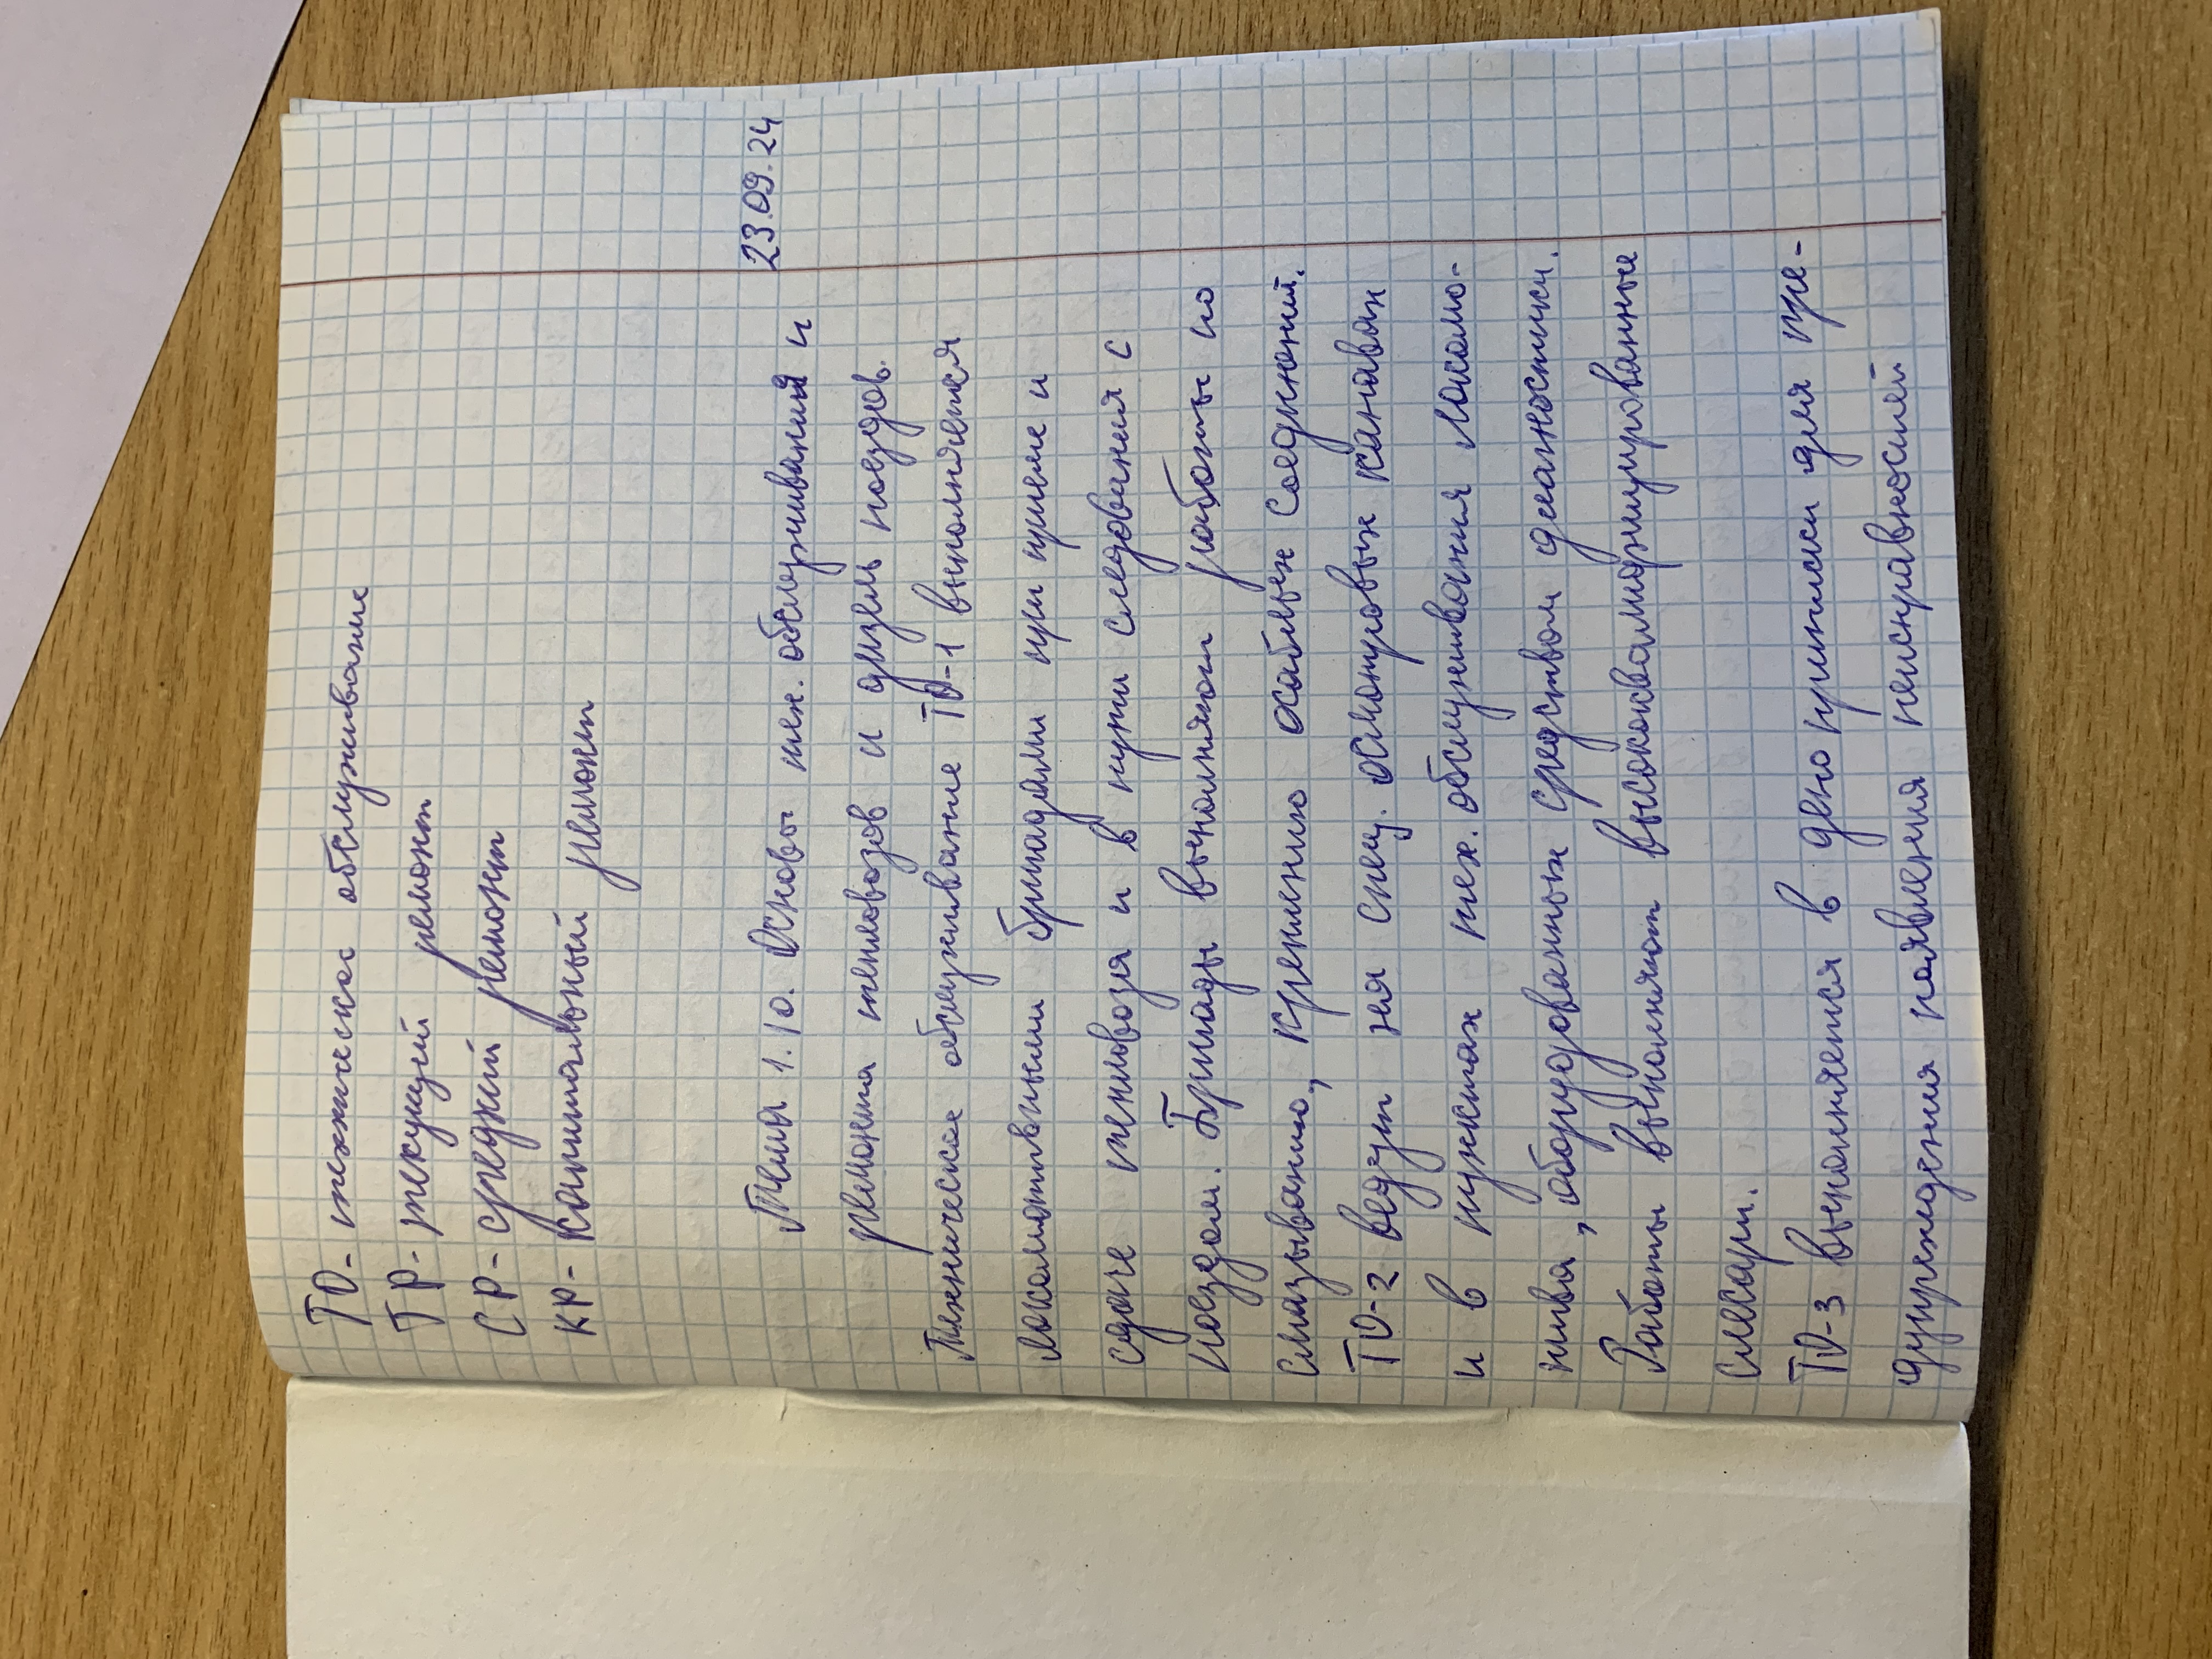 ТО- технические обслуживание
ТР- текущей ремонт
СР- средний ремонт
КР- капитальный ремонт
23.09.24
Тема 1.10. Основы тех. обслуживания и
ремонта тепловозов и дизель поездов.
Техническое обслуживание ТО-1 выполняется
локомотивными бригадами при приеме и
сдаче тепловоза и в пути следования с
поездом. Бригады выполняют работы по
смазыванию, креплению ослабших соединений.
ТО-2 ведут на спец. осмотровых канавах
и в пунктах тех. обслуживания локомо-
тива, оборудованных средством диагностики.
Работы выполняют высококвалифицированные
слесари.
ТО-3 выполняется в депо приписки для пре-
дупреждения появления неисправностей